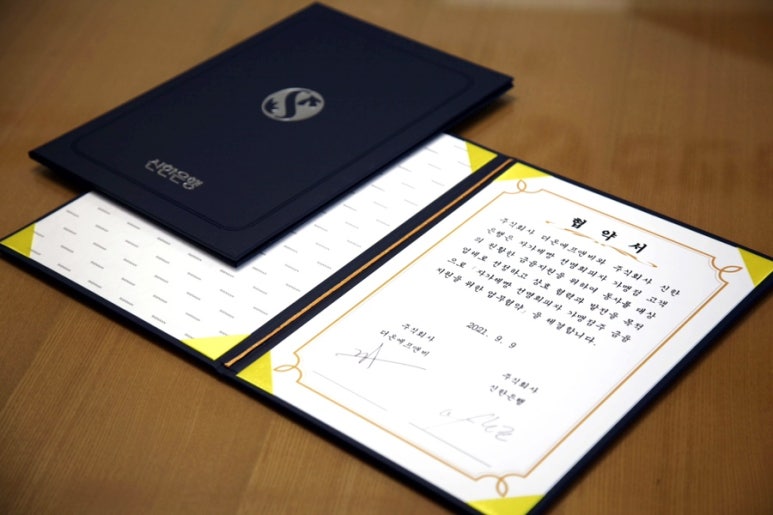 신한은행
협 약 서
주식회사 더온에프앤비와 주식회사 신한
은행은 자가제빵 선명희피자 가맹점 고객
의 원활한 금융지원을 위하여 통사를 대상
업체로 선정하고 상호 협력과 발전을 목적
으로 「자가제빵 선명희피자 가맹점주 금융
지원을 위한 업무협약」을 체결합니다.
2021. 9. 9
주식회사
더온에프앤비
주식회사
신한은행